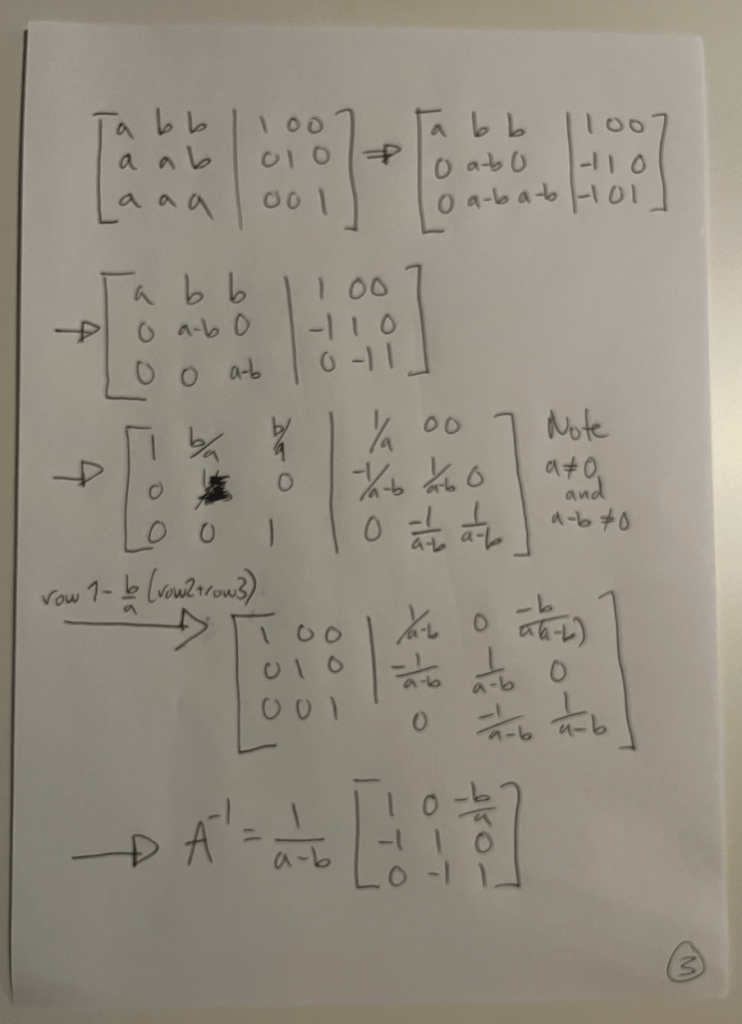 [a b b | 1 0 0] ⇒ [a b b | 1 0 0]
[a a b | 0 1 0] [0 a-b 0 | -1 1 0]
[a a a | 0 0 1] [0 a-b a-b | -1 0 1]
→ [a b b | 1 0 0]
[0 a-b 0 | -1 1 0]
[0 0 a-b | 0 -1 1]
→ [1 b/a b/a | 1/a 0 0] Note
[0 1 0 | -1/a-b 1/a-b 0] a≠0
and
[0 0 1 | 0 -1/a-b 1/a-b] a-b≠0
row 1 - b/a (row2+row3)
→ [1 0 0 | 1/a-b 0 -b/a(a-b)]
[0 1 0 | -1/a-b 1/a-b 0]
[0 0 1 0 -1/a-b 1/a-b]
→ A^-1 = 1/a-b [1 0 -b/a]
[-1 1 0]
[0 -1 1]
3